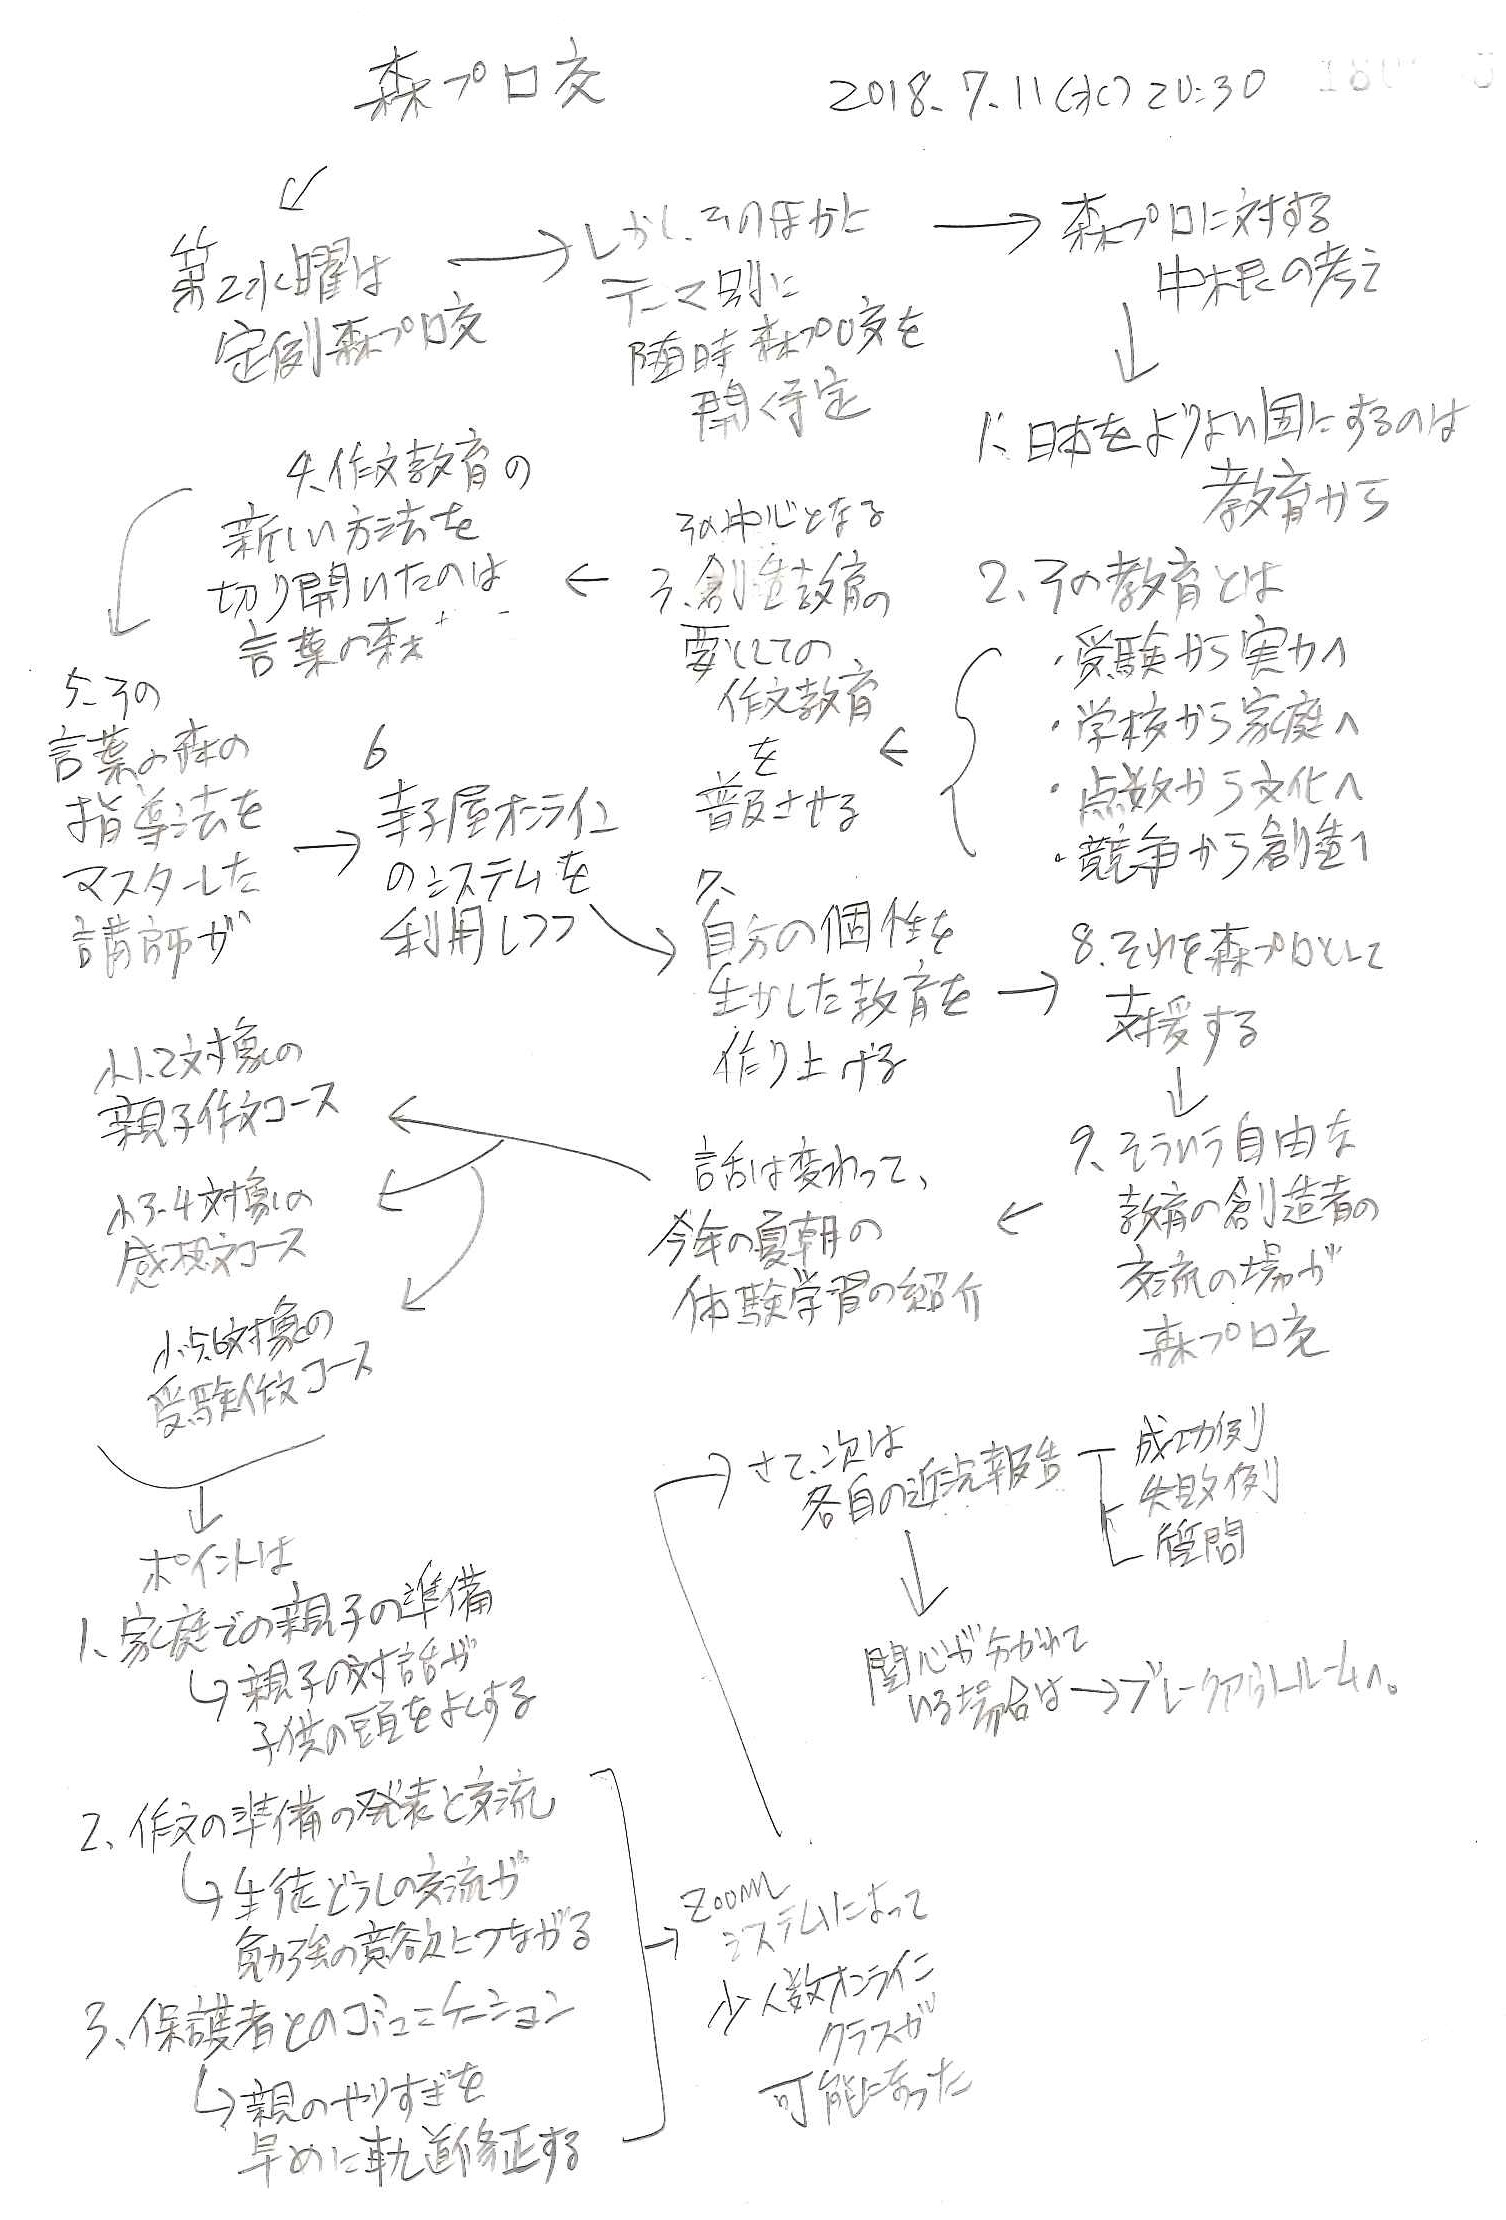 森プロ交
2018.7.11(水)20:30
第2水曜は
定例森プロ交
しかし、そのほかに
テーマ別に
随時森プロ交を
開く予定
森プロに対する
中根の考え
1、日本をよりよい国にするのは
教育から
2、その教育とは
・受験から実力へ
・学校から家庭へ
・点数から文化へ
・競争から創造へ
その中心となる
3、創造教育の
要としての
作文教育
を
普及させる
4、作文教育の
新しい方法を
切り開いたのは
言葉の森
5、その
言葉の森の
指導法を
マスターした
講師が
6
寺子屋オンライン
のシステムを
利用しつつ
7、
自分の個性を
生かした教育を
作り上げる
8、それを森プロとして
支援する
9、そういう自由な
教育の創造者の
交流の場が
森プロ交
話は変わって、
今年の夏朝の
体験学習の紹介
小1、2対象の
親子作文コース
小3-4対象の
感想文コース
小5、6対象の
受験作文コース
ポイントは
1、家庭での親子の準備
親子の対話が
子供の頭をよくする
2、作文の準備の発表と交流
生徒どうしの交流が
勉強の意欲とつながる
3、保護者とのコミュニケーション
親のやりすぎを
早めに軌道修正する
zoom
システムによって
少人数オンライン
クラスが
可能になった
さて、次は
各自の近況報告
成功例
失敗例
質問
関心が分かれて
いる場合は→ブレークアウトルームへ。